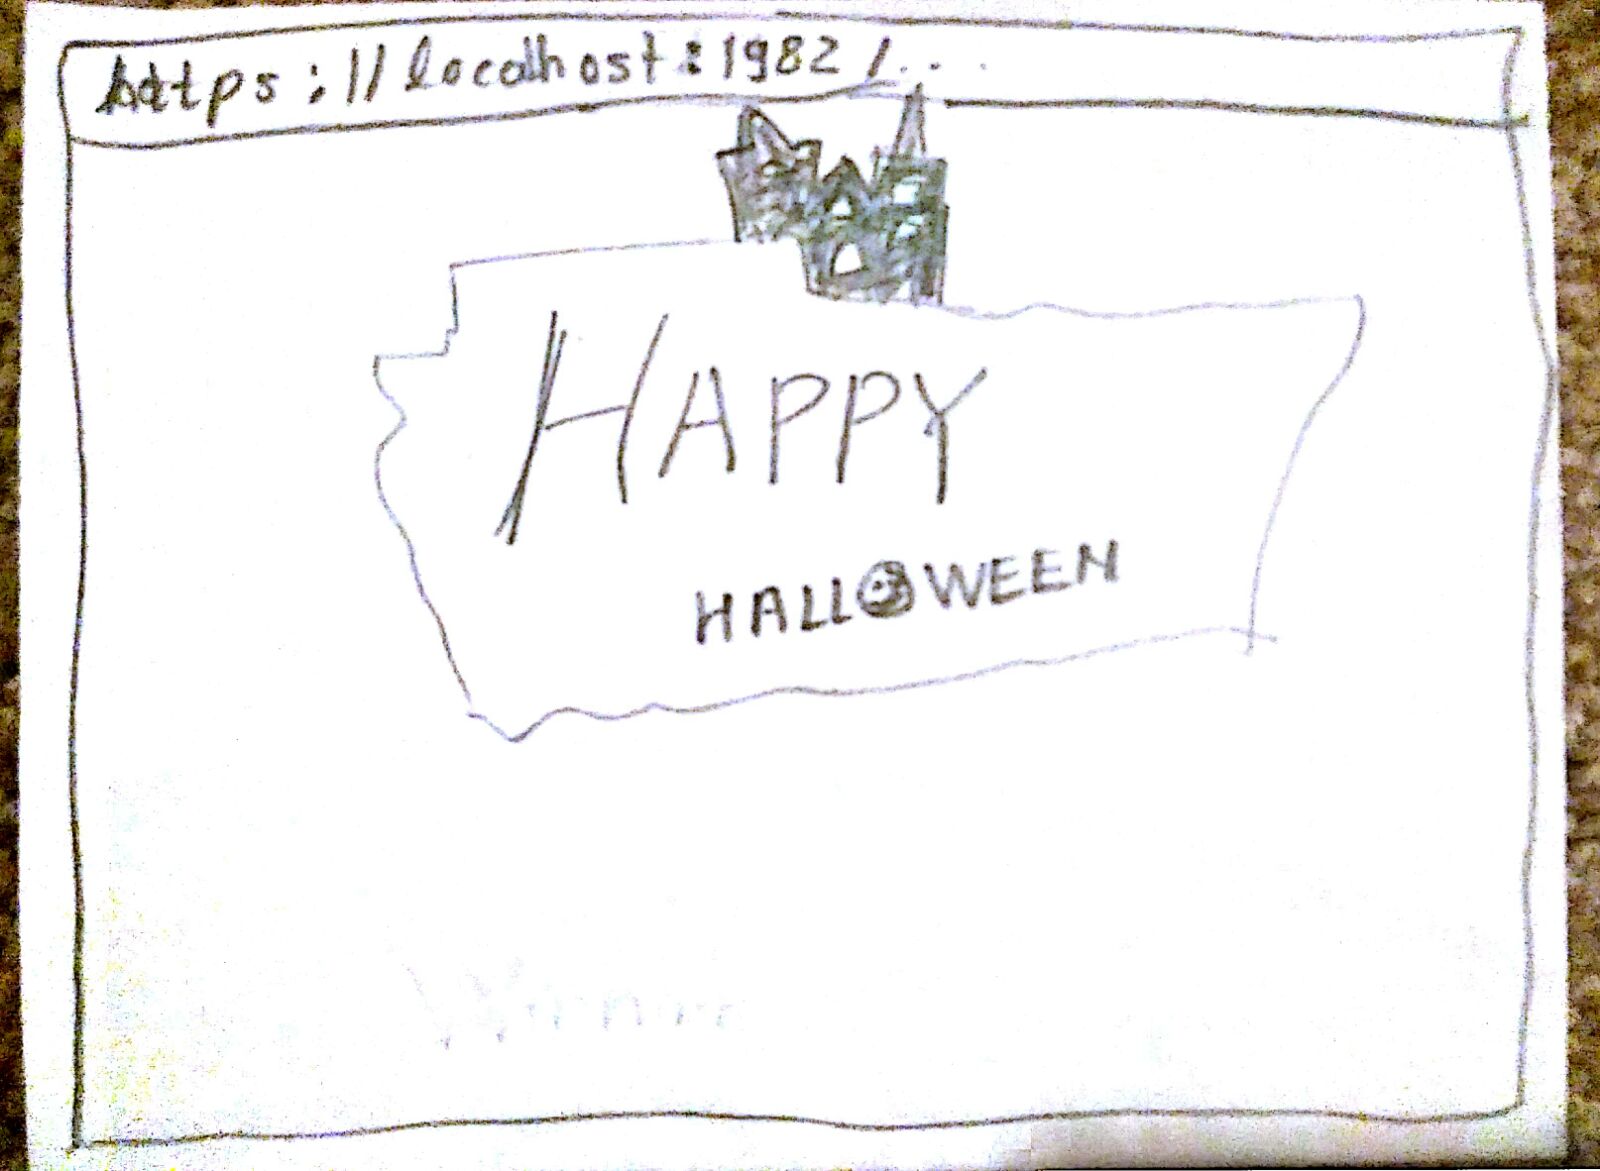 https://localhost:1982/...
HAPPY
HALLOWEEN